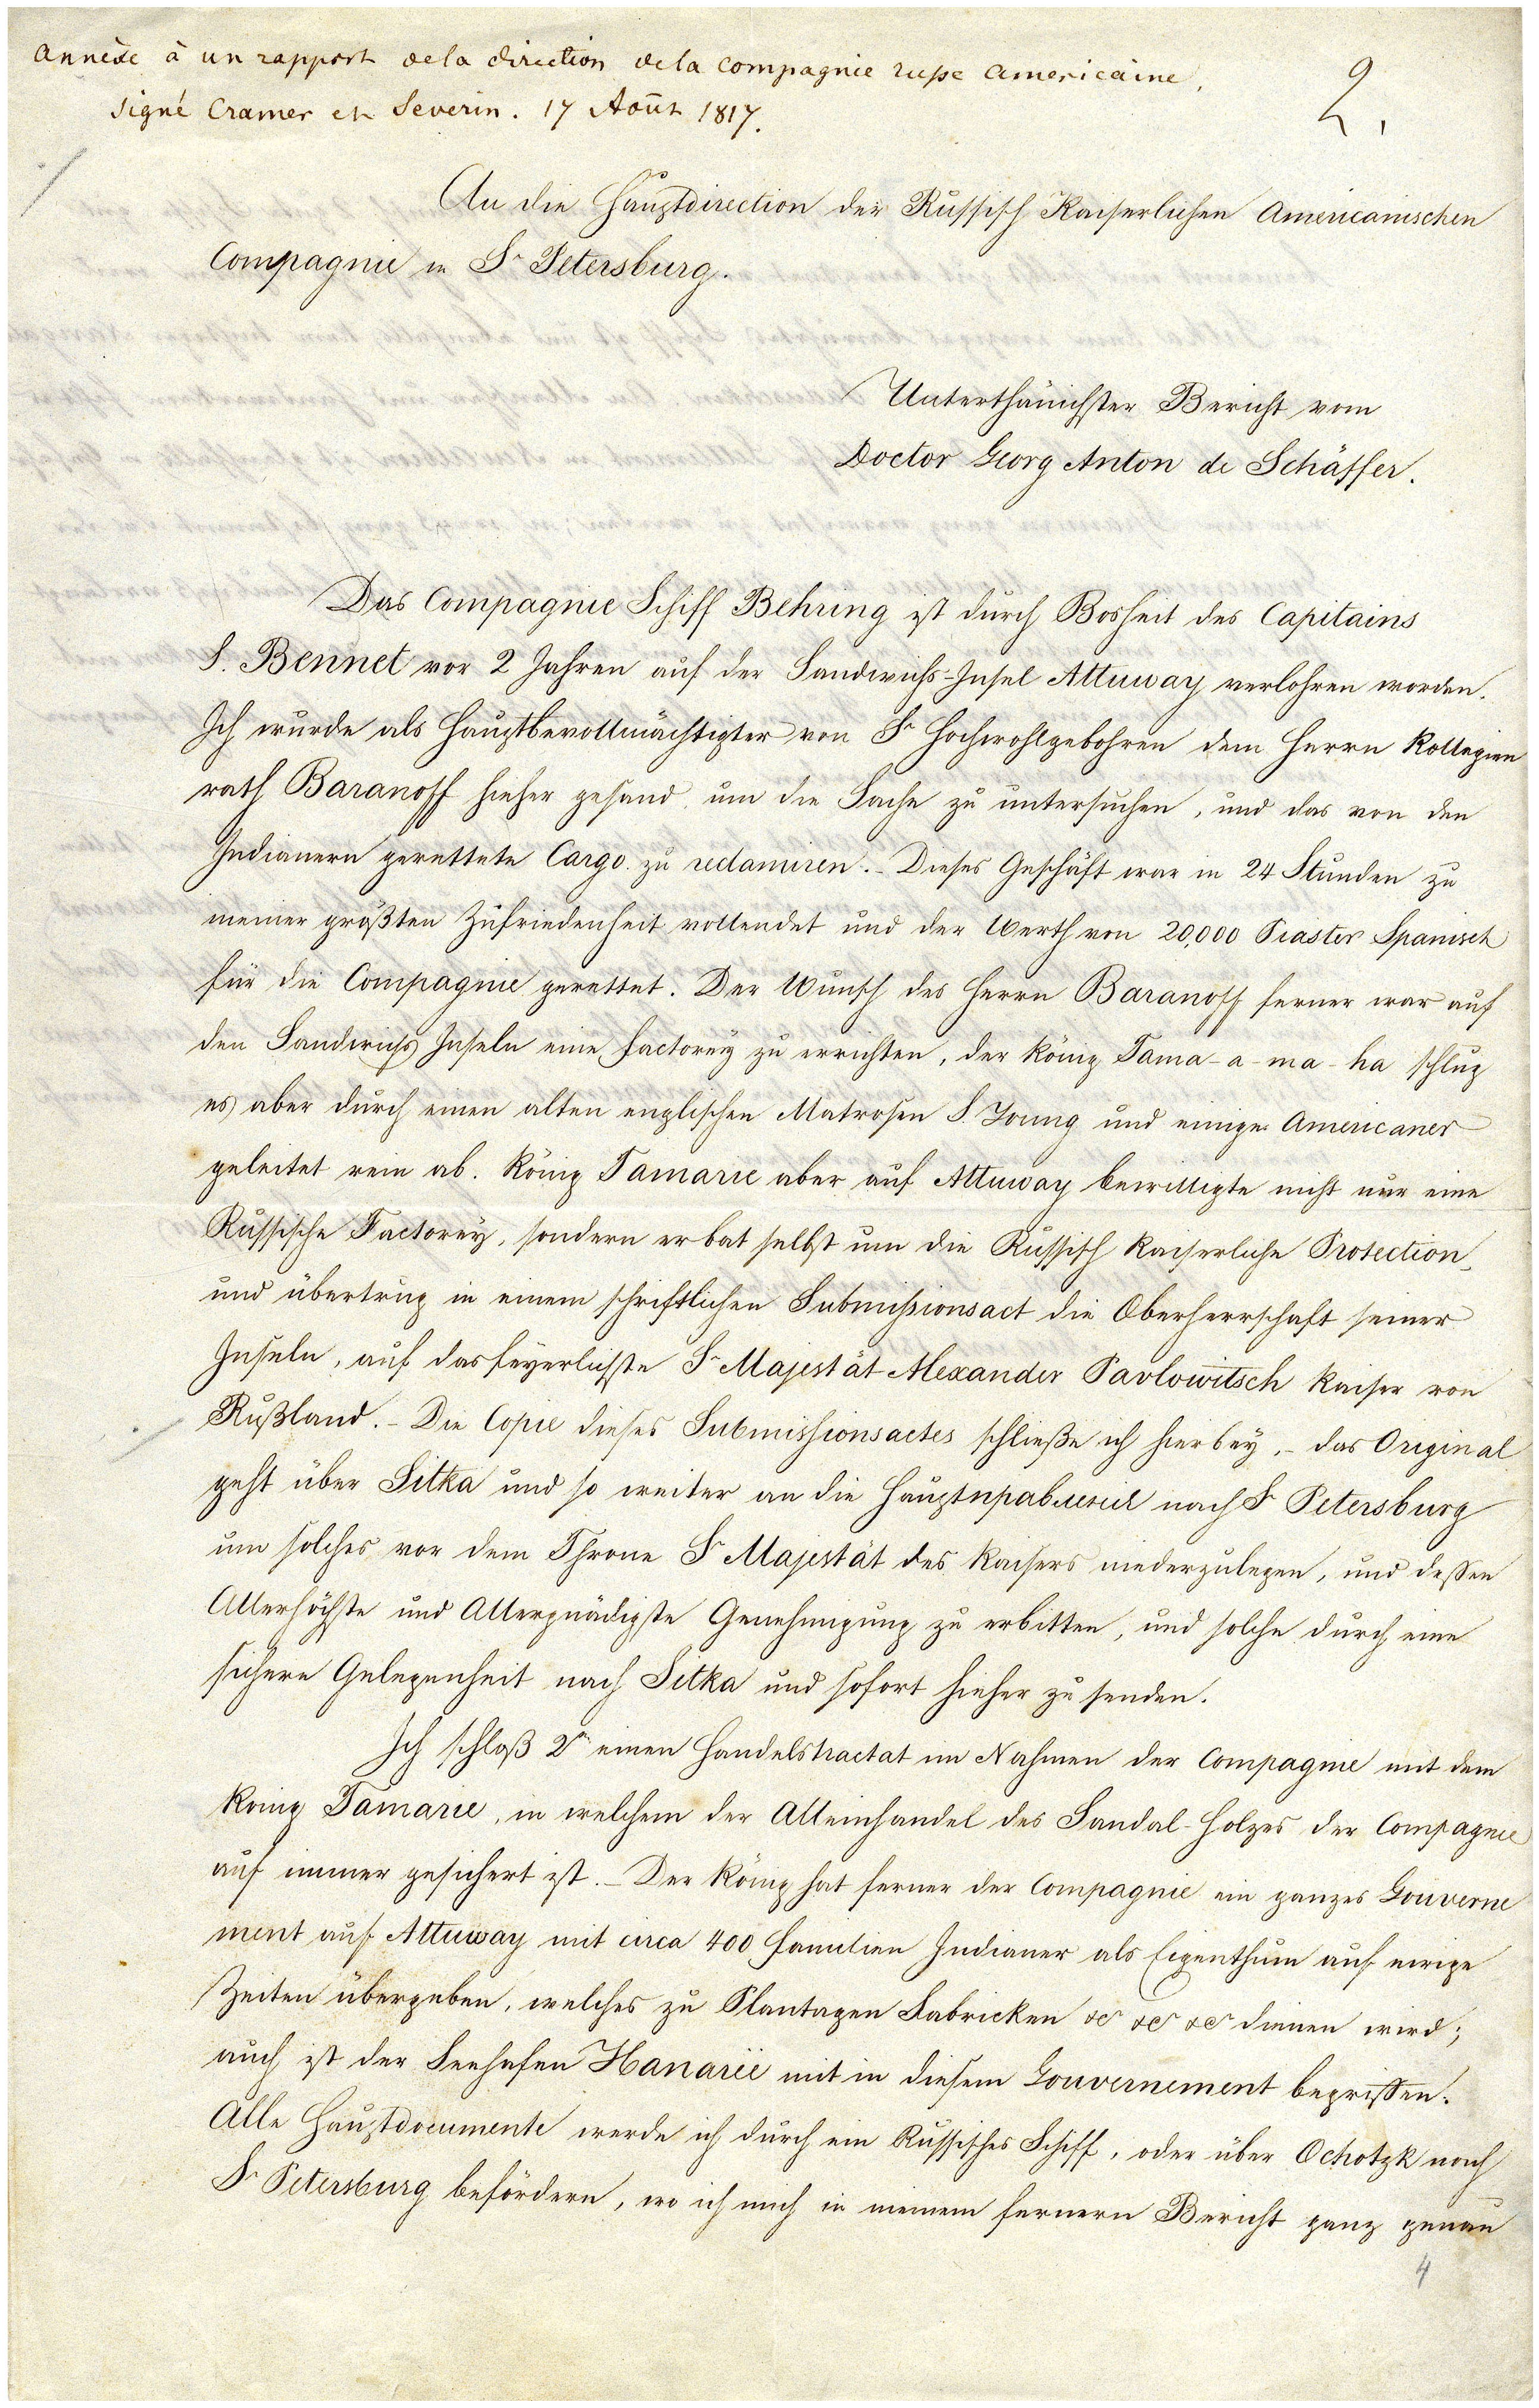 annèxe à un rapport de la direction de la compagnie russe americaine,
signé Cramer et Severin. 17 Août 1817.
2.
An die Hauptdirection der Russisch Kaiserlichen Americanischen
Compagnie in St Petersburg.
Unterthänichster Bericht vom
Doctor Georg Anton de Schäffer.
Das Compagnie Schiff Behring ist durch Bosheit des Capitains
S. Bennet vor 2 Jahren auf der Sandwichs-Insel Attuway verlohren worden.
Ich wurde als Hauptbevollmächtigter von Sr Hochwohlgebohren dem Herrn Kollegien
rath Baranoff hieher gesand um die Sache zu untersuchen, und das von den
Indianern gerettete Cargo zu reclamiren. - Dieses Geschäft war in 24 Stunden zu
meiner größten Zufriedenheit vollendet und der Werth von 20,000 Piaster Spanisch
für die Compagnie gerettet. Der Wunsch des Herrn Baranoff ferner war auf
den Sandwichs Inseln eine Factorey zu errichten, der König Tama-a-ma-ha schlug
es aber durch einen alten englischen Matrosen S. Young und einige Americaner
geleitet rein ab. König Tamarie aber auf Attuway bewilligte nicht nur eine
Russische Factorey, sondern er bat selbst um die Russisch Kaiserliche Protection,
und übertrug in einem schriftlichen Submissionsact die Oberherrschaft seiner
Inseln, auf das feyerlichste Sr Majestät Alexander Pavlowitsch Kaiser von
Rußland. - Die Copie dieses Submissionsactes schließe ich hierbey, - das Original
geht über Sitka und so weiter an die Hauptправленіе nach St Petersburg
um solches vor dem Throne Sr Majestät des Kaisers niederzulegen, und dessen
Allerhöchste und Allergnädigste Genehmigung zu erbitten, und solche durch eine
sichere Gelegenheit nach Sitka und sofort hieher zu senden.
Ich schloß 2n einen Handelstractat im Nahmen der Compagnie mit dem
König Tamarie, in welchem der Alleinhandel des Sandal-Holzes der Compagnie
auf immer gesichert ist. - Der König hat ferner der Compagnie ein ganzes Gouverne
ment auf Attuway mit circa 400 Familien Indianer als Eigenthum auf ewige
Zeiten übergeben, welches zu Plantagen Fabricken &c &c &c dienen wird;
auch ist der Seehafen Hanarёё mit in diesem Gouvernement begriffen.
Alle Hauptdocumente werde ich durch ein Russisches Schiff, oder über Ochotzk nach
St Petersburg befördern, wo ich mich in meinem fernern Bericht ganz genau
4